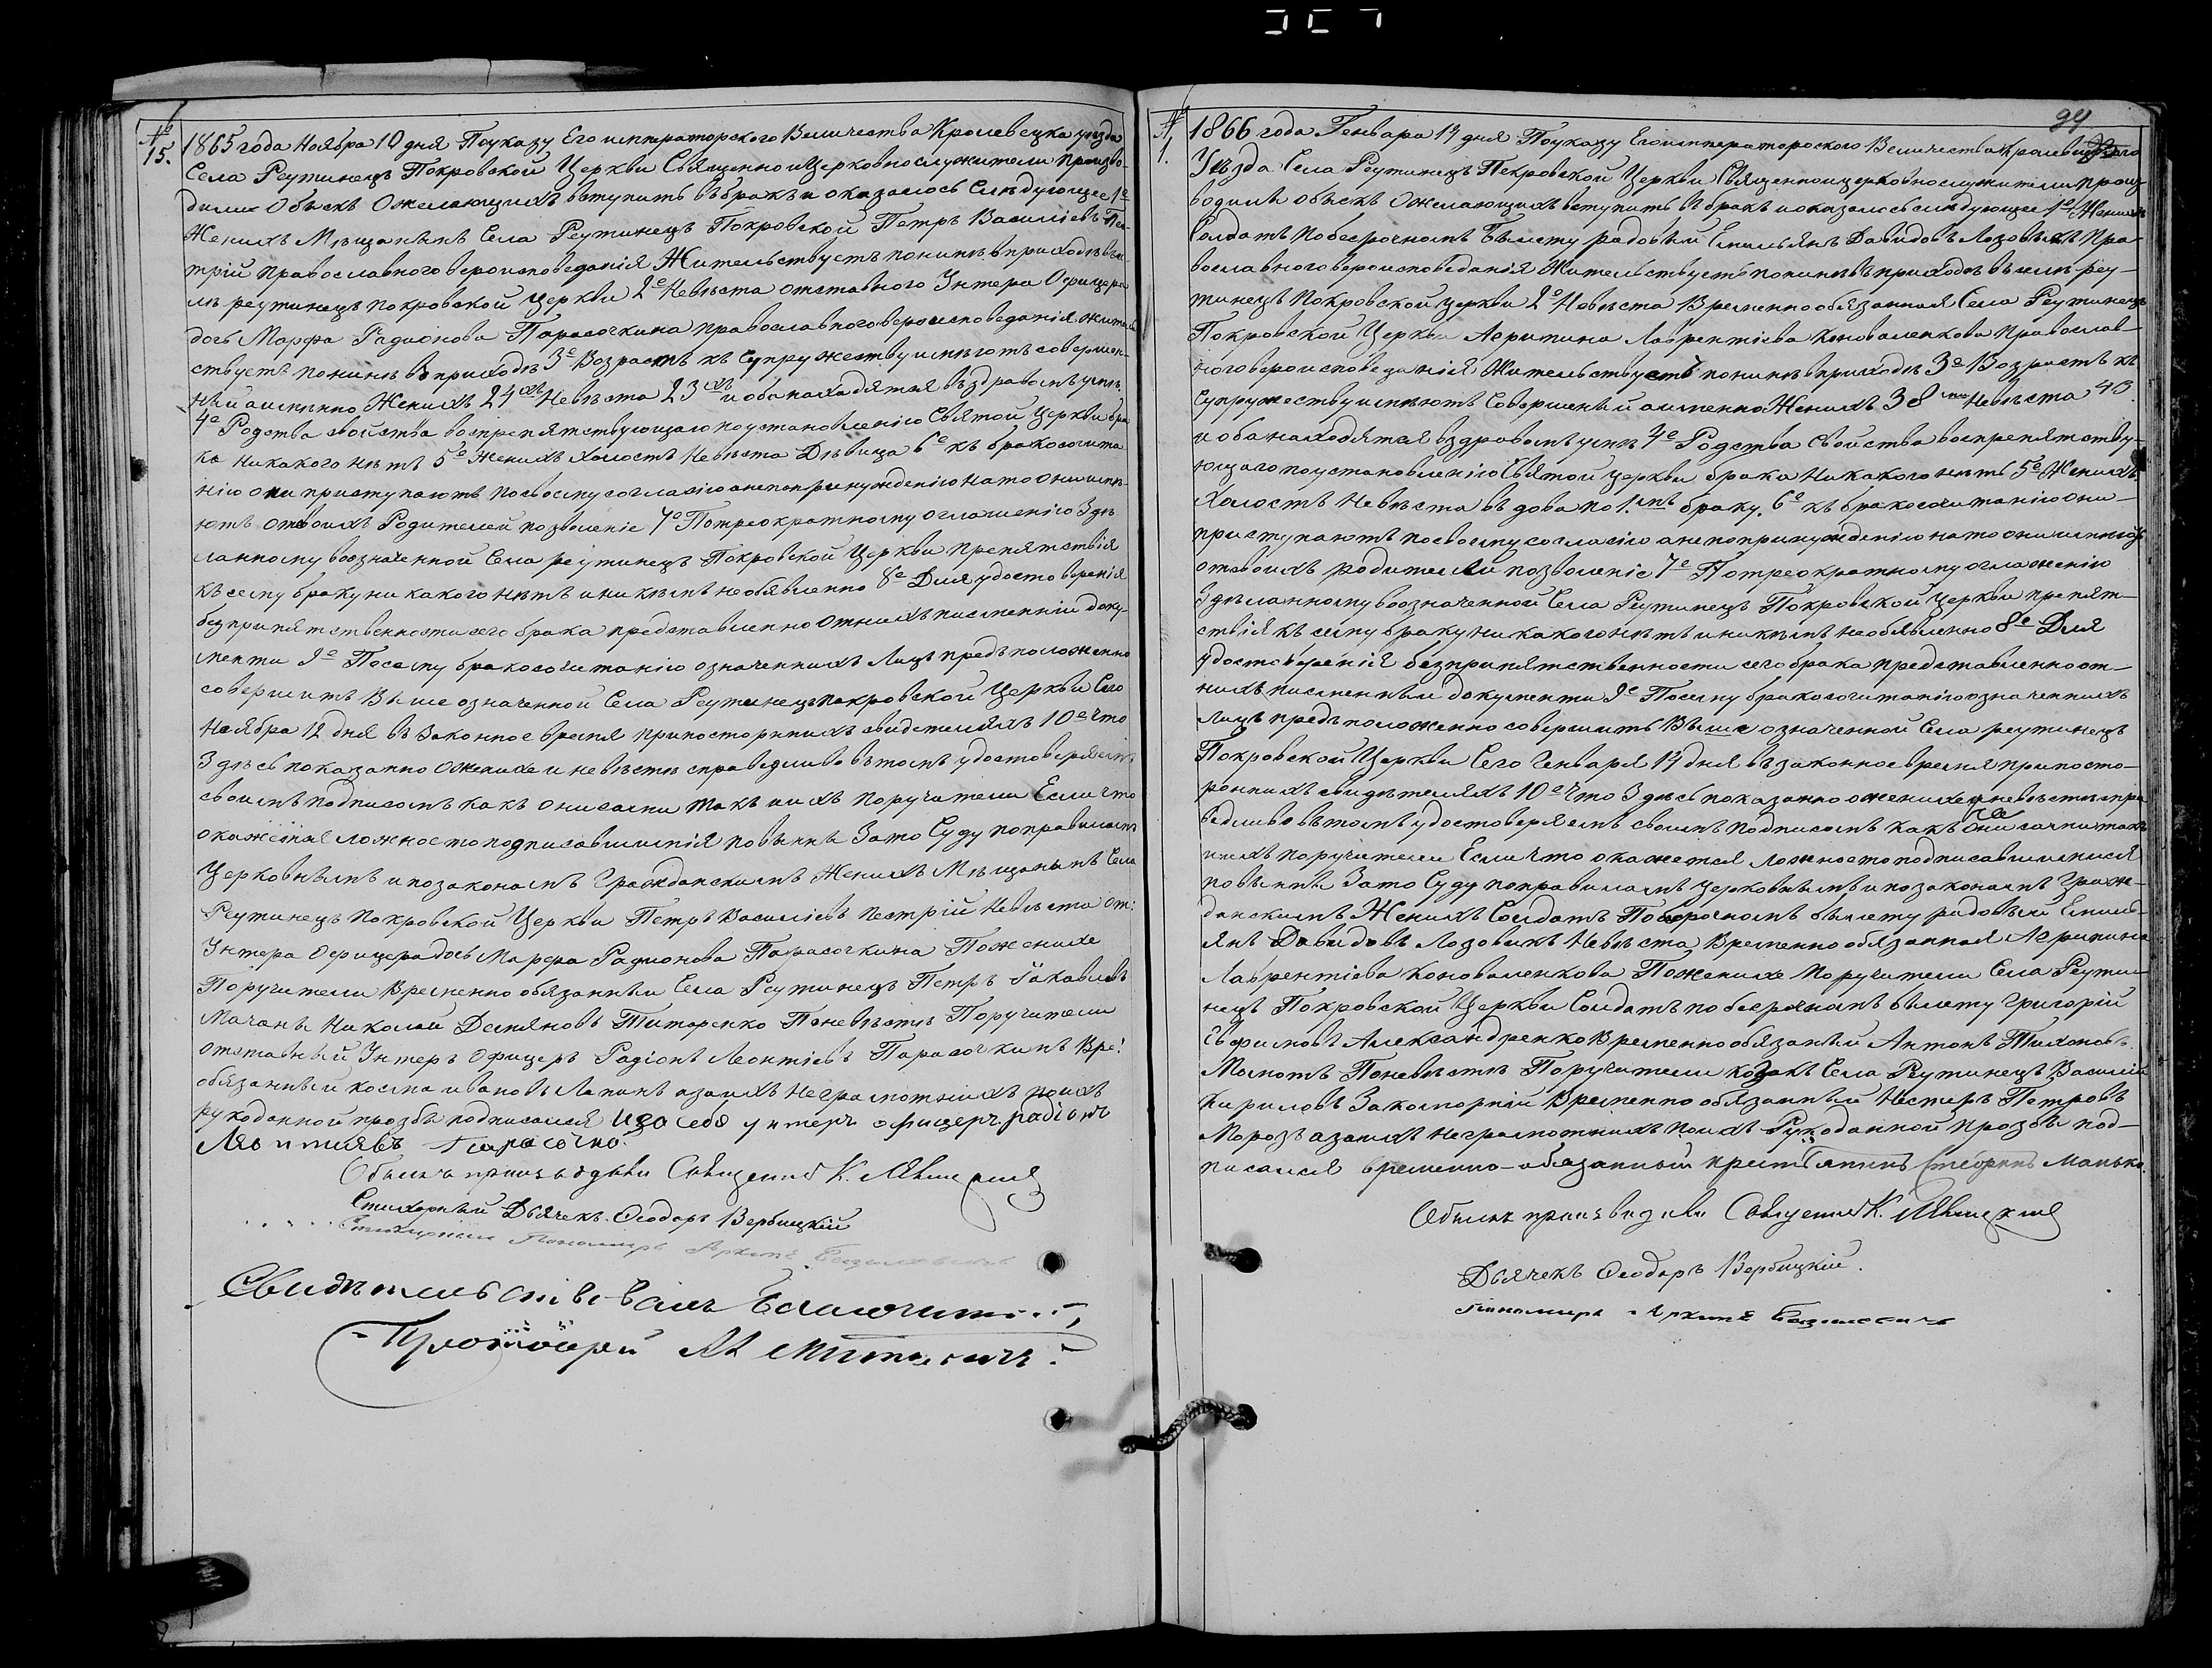 № 15.
1865 года Ноября 10 дня Поуказу Его императорского Величества Кролевецка уезда
Села Реутинецъ Покровской Церкви Священно и Церковнослужители произво-
дили Обыскъ Ожелающихъ вступить въ бракъ и оказалось Следующее 1е
Женихъ Мѣщанинъ Села Реутинецъ Покровской Петръ Василіевъ Пес-
трій православного вероисповеданія Жительствуетъ понинѣ вприходѣ въ се
лѣ реутинецъ покровской Церкви 2е Невѣста отставного Унтера Офицера
дочь Марфа Радионова Парасочкина православного вероисповеданія житель
ствуетъ понинѣ вприходѣ 3е Возрастъ къ супружеству имѣютъ совершен-
ный аименно Женихъ 24 ихъ Невѣста 23 ихъ и оба находятся въ здравомъ умѣ
4е Родства свойства воспрепятствующаго поустановленію Святой Церкви бра
ка никакого нѣтъ 5е Женихъ холостъ Невѣста Дѣвица 6е къ бракосочита
нію они приступаютъ посвоему согласію анепопринужденію нато они имѣ
ютъ отвоихъ Родителей позволеніе 7е Потреократному оглашенію Здѣ
ланному воозначенной Села реутинецъ Покровской Церкви препятствія
къ сему браку ни какого нѣтъ иникѣмъ необявленно 8е Для удостоверенія
безприпятственности сего брака представленно отнихъ писменніи доку-
менти 9е Посему бракосочитанію означеннихъ Лицъ предположенно
совершить Выше означенной Села Реутинецъ покровской Церкви Сего
Ноября 12 дня въ Законное время припосторннихъ свидетеляхъ 10е что
Здѣсь показанно Оженихе и невѣсте справедливо вътомъ удостоверяемъ
своимъ подписомъ какъ онисами такъ иихъ поручители Если что
окажется ложно топодписавшиміся повинни Зато Суду поправиламъ
Церковнымъ и позаконамъ Гражданскимъ Женихъ Мѣщанинъ Села
Реутинецъ Покровской Церкви Петръ Василіевъ Пестрій Невѣста от:
Унтера Офицера дочь Марфа Радионова Парасочкина Поженихе
Поручители Временно обязанныи Села Реутинецъ Петръ
Николай Демяновъ Титоренко Поневѣсте Поручители
отставный Унтеръ Офицеръ Радіонъ Леонтіевъ Парасочкинъ Вре:
обязанный косма ивановъ Лапинъ азаихъ Неграмотнихъ поихъ
рукоданной прозбѣ подписался изо себя унтеръ офицеръ радіонъ
Парасочко.
Обыскъ производили Священникъ К.
Стихарный Дьячекъ Ѳеодоръ Вербицкій
Пономарь
Свидѣтельствовалъ Благочин.
Протоіерей
94
№ 1.
1866 года Генвара 19 дня Поуказу Егоимператороского Величества Кролевецкого
Уѣзда Села Реутинецъ Покровской Церкви Священноицерковнослужители произ
водили обыскъ Ожелающихъ вступить въ бракъ иоказалось слѣдующее 1е Женихъ
Солдатъ побесрочномъ былету радовый Емильянъ Давидовъ Лозовихъ Пра-
вославного вероисповеданія Жительствуетъ понинѣ въ приходѣ въ селѣ реу-
тинецъ Покровской церкви 2е Невѣста Временнообязанная Села Реутинецъ
Покровской Церкви Агрипина Лаврентіева Коноваленкова Православ-
ного вероисповеданія Жительствуетъ понинѣ вприходѣ 3е Возрастъ къ
Супружеству имѣютъ Совершеный аименно Женихъ 38 Невѣста 40.
и оба находятся вздравомъ умѣ 4е Родства Свойства воспрепятству-
ющаго поустановленію Святой Церкви брака Никакого нѣтъ 5е Женихъ
Холостъ Невѣста вдова по 1.мъ браку. 6е къ бракосочитанію они-
приступаютъ посвоему согласію анепопринужденію нато они имѣютъ
отвоихъ родителей позволеніе 7е Потреократному оглашенію
Здѣланному воозначенной Села Реутинецъ Покровской Церкви препят-
ствія къ сему браку никакого нѣтъ иникѣмъ необявленно 8е Для
удостоверенія безприпятственности сего брака представленно от-
нихъ писменныи документи 9е Посему бракосочитанію означеннихъ
лицъ предположенно совершить Выше означенной Села реутинецъ
Покровской Церкви Сего Генваря 19 дня въ законное время припосто-
роннихъ свидѣтеляхъ 10е Что Здѣсь показанно ожениже и невѣсте спра
ведливо вътомъ удостоверяемъ своимъ подписомъ какъ они сами такъ
иихъ поручители Если что окажется ложно топодписавшимися
повинни Зато Суду поправиламъ Церковнымъ и позаконамъ Граж-
данскимъ Женихъ Солдатъ Побесрочномъ былету радовый Емиль-
янъ Давидовъ Лозовихъ Невѣста Временно обязанная Агрипина
Лаврентіева Коноваленкова Поженихе Поручители Села Реути-
нецъ Покровской Церкви Солдатъ побесрочномъ былету Григорій
Ефимовъ Александренко Временно обязаный Антонъ Тихоновъ
Мамотъ Поневѣсте Поручители козакъ Села Реутинецъ Василій
Кириловъ Закоморній Временно обязанный Нестеръ Петровъ
Морозъ азаихъ неграмотнихъ поихъ Рукоданной прозбѣ под-
писался временно-обязанный крестьянинъ Манько.
Обыскъ производили Священникъ К.
Дьячекъ Ѳеодоръ Вербицкій.
Пономарь